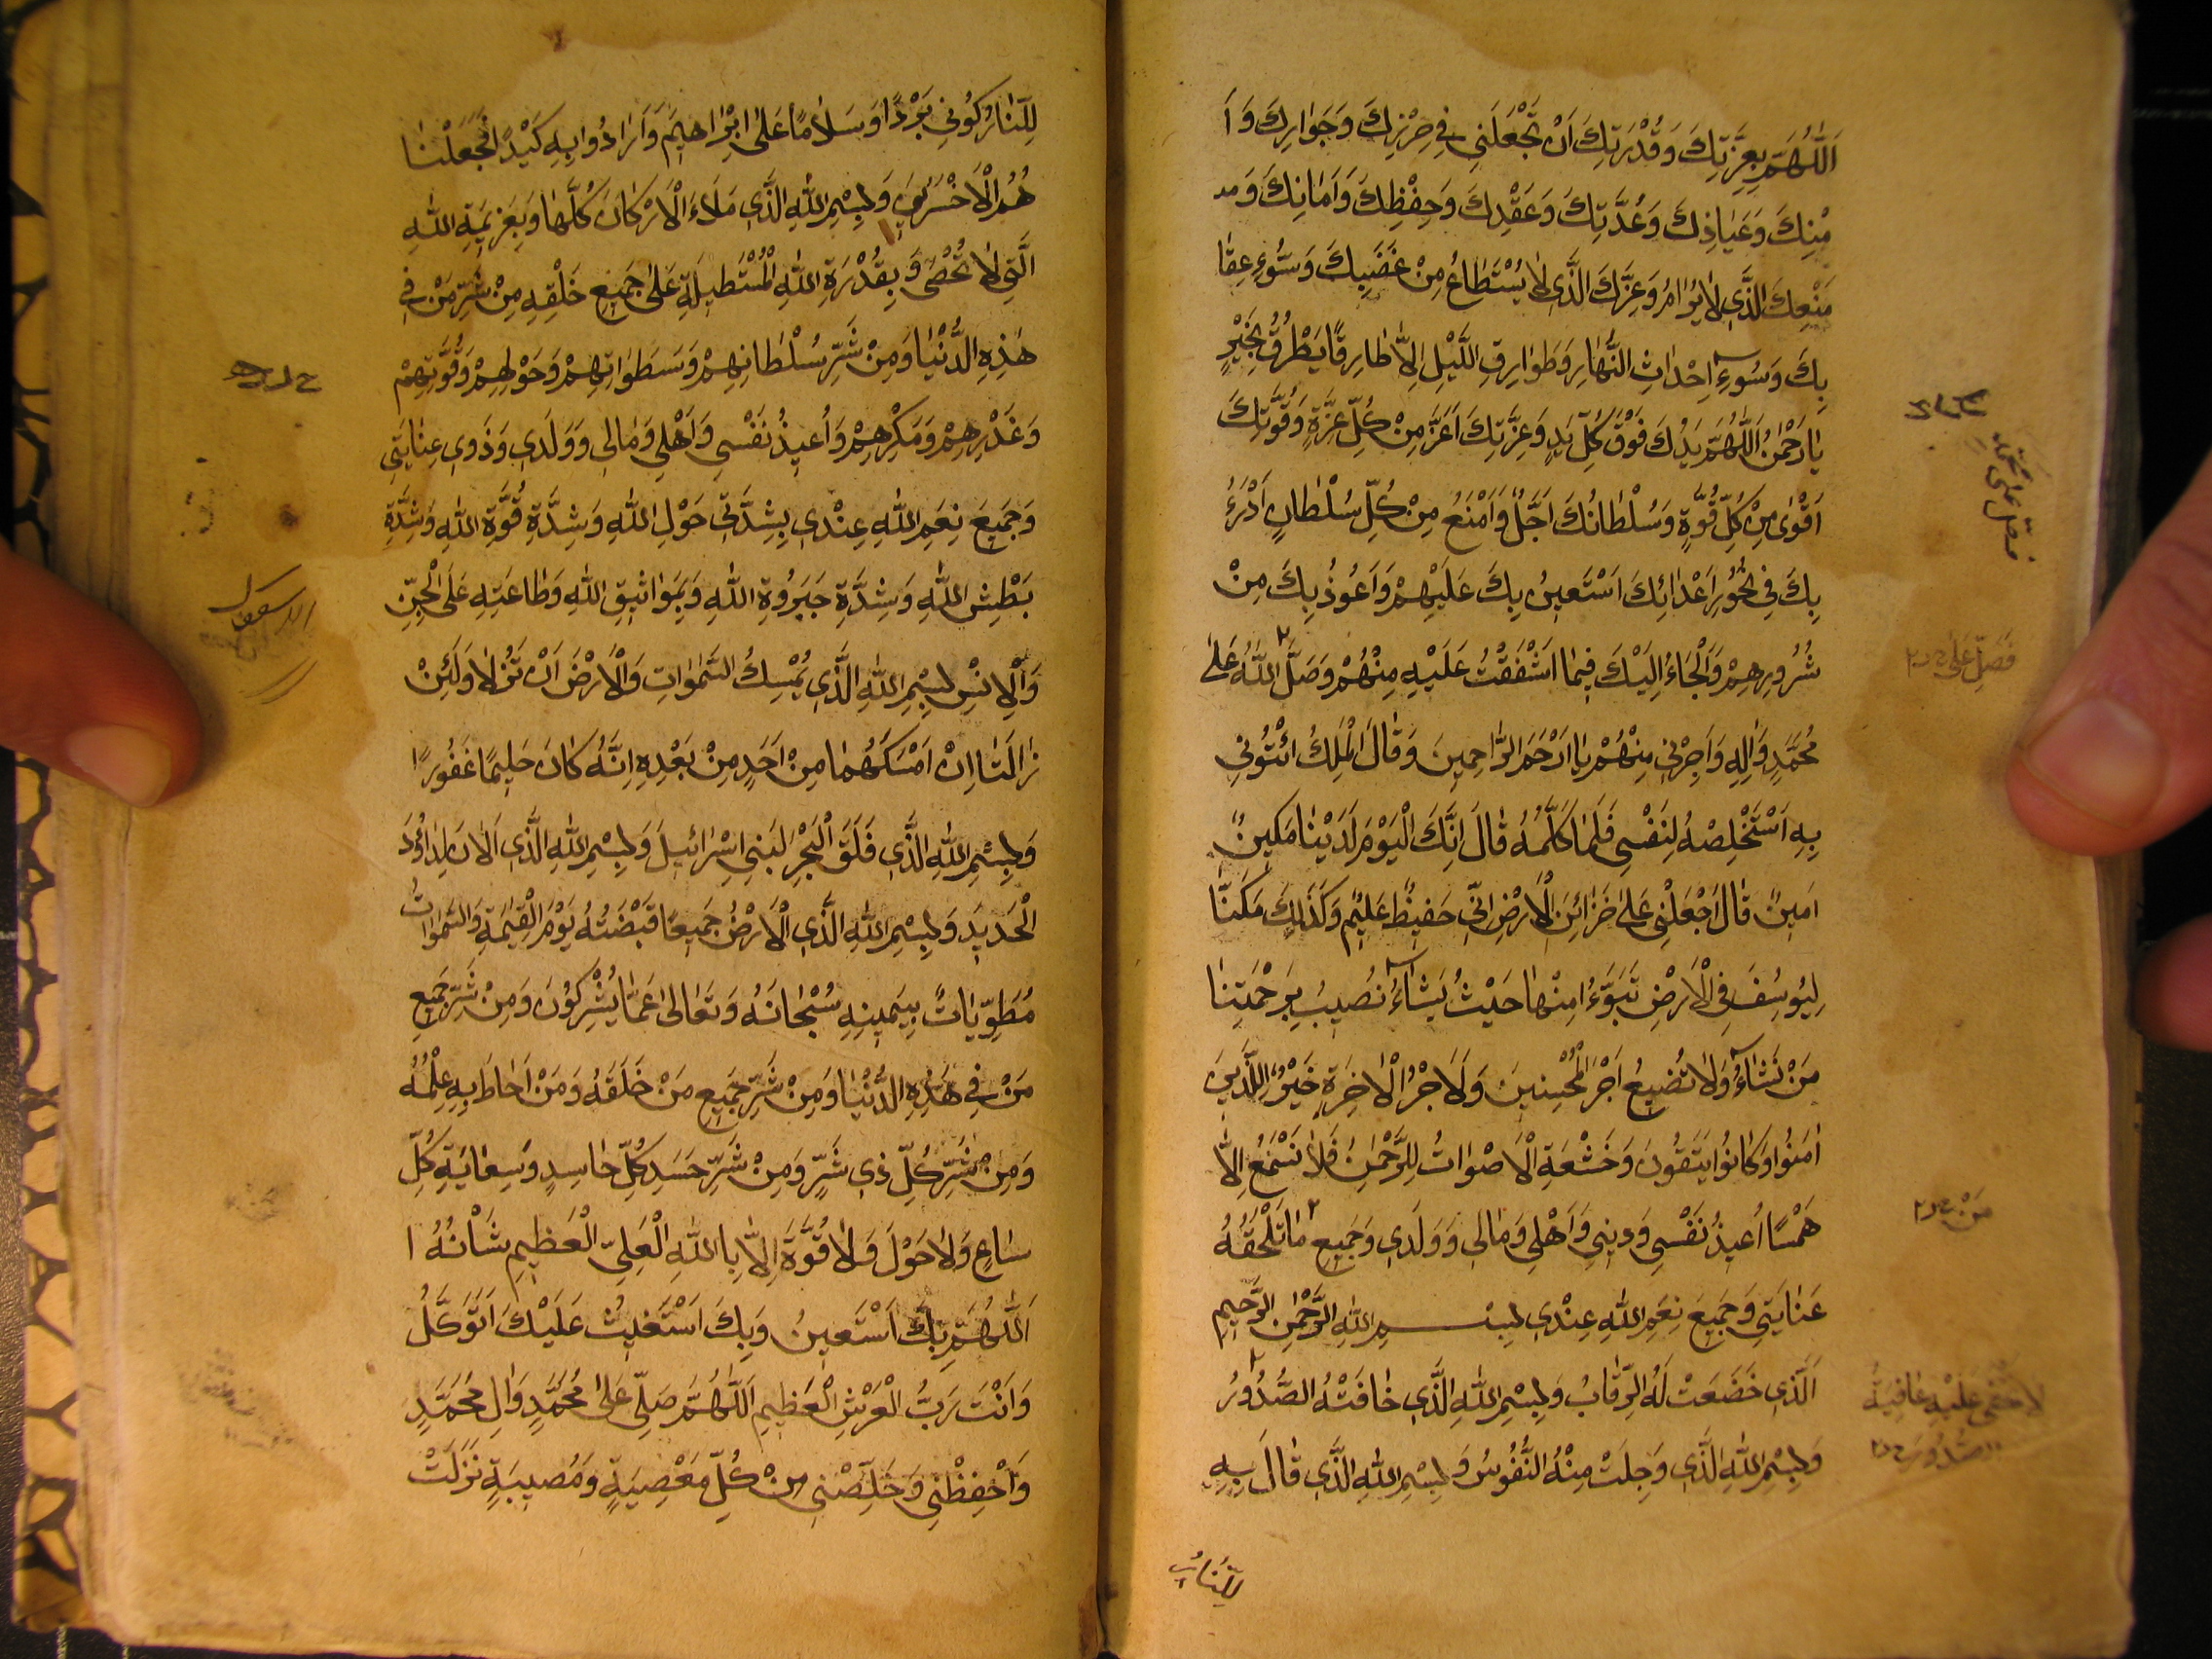 اَللّٰهُمَّ بِعِزَّتِكَ وَقُدْرَتِكَ اَنْ تَجْعَلَنِي فِي حِرْزِكَ وَجَوَارِكَ وَ اَ
مْنِكَ وَعَيَاذِكَ وَعُدَّتِكَ وَعَقْدِكَ وَحِفْظِكَ وَاَمَانِكَ وَ
مَنْعِكَ الَّذِي لَا يُرَامُ وَعِزِّكَ الَّذِي لَا يُسْتَطَاعُ مِنْ غَضَبِكَ وَسُوءِ عِقَا
بِكَ وَسُوءِ اِحْدَاثِ النَّهَارِ وَطَوَارِقِ اللَّيْلِ اِلَّا طَارِقًا يَطْرُقُ بِخَيْرٍ
يَا رَحْمٰنُ اَللّٰهُمَّ يَدُكَ فَوْقَ كُلِّ يَدٍ وَعِزَّتِكَ اَعَزُّ مِنْ كُلِّ عِزَّةٍ وَقُوَّتِكَ
اَقْوٰى مِنْ كُلِّ قُوَّةٍ وَسُلْطَانُكَ اَجَلُّ وَاَمْنَعُ مِنْ كُلِّ سُلْطَانٍ اَدْرَءُ
بِكَ فِي نُحُورِ اَعْدَائِكَ اَسْتَعِينُ بِكَ عَلَيْهِمْ وَاَعُوذُ بِكَ مِنْ
شُرُورِهِمْ وَاَلْجَاءُ اِلَيْكَ فِيمَا اَشْفَقْتُ عَلَيْهِ مِنْهُمْ وَصَلَّ اللّٰهُ عَلٰى
مُحَمَّدٍ وَاٰلِهِ وَاَجِرْنِي مِنْهُمْ يَا اَرْحَمَ الرَّاحِمِينَ وَقَالَ الْمَلِكُ ائْتُونِي
بِهِ اَسْتَخْلِصْهُ لِنَفْسِي فَلَمَّا كَلَّمَهُ قَالَ اِنَّكَ الْيَوْمَ لَدَيْنَا مَكِينٌ
اَمِينٌ قَالَ اجْعَلْنِي عَلٰى خَزَائِنِ الْاَرْضِ اِنِّي حَفِيظٌ عَلِيمٌ وَكَذٰلِكَ مَكَنَّا
لِيُوسُفَ فِي الْاَرْضِ يَتَبَوَّءُ مِنْهَا حَيْثُ يَشَاءُ نُصِيبُ بِرَحْمَتِنَا
مَنْ نَشَاءُ وَلَا نُضِيعُ اَجْرَ الْمُحْسِنِينَ وَلَاَجْرُ الْاٰخِرَةِ خَيْرٌ لِلَّذِينَ
اٰمَنُوا وَكَانُوا يَتَّقُونَ وَخَشَعَةِ الْاَصْوَاتُ لِلرَّحْمٰنِ فَلَا تَسْمَعُ اِلَّا
هَمْسًا اُعِيذُ نَفْسِي وَدِينِي وَاَهْلِي وَمَالِي وَوَلَدِي وَجَمِيعِ مَا تَلْحَقُهُ
عَنَايَتِي وَجَمِيعَ نِعَمِ اللّٰهِ عِنْدِي بِسْمِ اللّٰهِ الرَّحْمٰنِ الرَّحِيمِ
اَلَّذِي خَضَعَتْ لَهُ الرِّقَابُ وَبِسْمِ اللّٰهِ الَّذِي خَافَتْهُ الصُّدُورُ
وَبِسْمِ اللّٰهِ الَّذِي وَجِلَتْ مِنْهُ النُّفُوسُ وَبِسْمِ اللّٰهِ الَّذِي قَالَ بِهِ
لِلنَّارِ
وصل على محمد
فَصَلِّ عَلٰى
مَنْ
لا خفى عليه خافية
الصُّدُور
لِلنَّارِ كُونِي بَرْدًا وَسَلَامًا عَلٰى اِبْرَاهِيمَ وَاَرَادُوا بِهِ كَيْدًا فَجَعَلْنَا
هُمُ الْاَخْسَرِينَ وَبِسْمِ اللّٰهِ الَّذِي مَلَاءَ الْاَرْكَانَ كُلَّهَا وَبِعَزِيمَةِ اللّٰهِ
الَّتِي لَا تُحْصٰى وَبِقُدْرَةِ اللّٰهِ الْمُسْتَطِيلَةِ عَلٰى جَمِيعِ خَلْقِهِ مِنْ شَرِّ مَنْ فِي
هٰذِهِ الدُّنْيَا وَمِنْ شَرِّ سُلْطَانِهِمْ وَسَطَوَاتِهِمْ وَحَوْلِهِمْ وَقُوَّتِهِمْ
وَغَدْرِهِمْ وَمَكْرِهِمْ وَاُعِيذُ نَفْسِي وَاَهْلِي وَمَالِي وَوَلَدِي وَذَوِي عِنَايَتِي
وَجَمِيعَ نِعَمِ اللّٰهِ عِنْدِي بِشِدَّتِي حَوْلِ اللّٰهِ وَشِدَّةِ قُوَّةِ اللّٰهِ وَشِدَّةِ
بَطْشِ اللّٰهِ وَشِدَّةِ جَبَرُوةِ اللّٰهِ وَبِمَوَاثِيقِ اللّٰهِ وَطَاعَتِهِ عَلَى الْجِنِّ
وَالْاِنْسِ بِسْمِ اللّٰهِ الَّذِي يُمْسِكُ السَّمٰوَاتِ وَالْاَرْضَ اَنْ تَزُولَا وَلَئِنْ
زَالَتَا اِنْ اَمْسَكَهُمَا مِنْ اَحَدٍ مِنْ بَعْدِهِ اِنَّهُ كَانَ حَلِيمًا غَفُورًا
وَبِسْمِ اللّٰهِ الَّذِي فَلَقَ الْبَحْرَ لِبَنِي اِسْرَائِيلَ وَبِسْمِ اللّٰهِ الَّذِي اَلَانَ لِدَاوُدَ
الْحَدِيدَ وَبِسْمِ اللّٰهِ الَّذِي الْاَرْضُ جَمِيعًا قَبْضَتُهُ يَوْمَ الْقِيٰمَةِ وَالسَّمٰوَاتُ
مُطَوِّيَاتٌ بِيَمِينِهِ سُبْحَانَهُ وَتَعَالٰى عَمَّا يُشْرِكُونَ وَمِنْ شَرِّ جَمِيعِ
مَنْ فِي هٰذِهِ الدُّنْيَا وَمِنْ شَرِّ جَمِيعِ مَنْ خَلَقَهُ وَمَنْ اَحَاطَ بِهِ عِلْمُهُ
وَمِنْ شَرِّ كُلِّ ذِي شَرٍّ وَمِنْ شَرِّ حَسَدِ كُلِّ حَاسِدٍ وَسِعَايَةِ كُلِّ
سَاعٍ وَلَا حَوْلَ وَلَا قُوَّةَ اِلَّا بِاللّٰهِ الْعَلِيِّ الْعَظِيمِ شَانُهُ ا
اَللّٰهُمَّ بِكَ اَسْتَعِينُ وَبِكَ اَسْتَغِيثُ عَلَيْكَ اَتَوَكَّلُ
وَاَنْتَ رَبُّ الْعَرْشِ الْعَظِيمِ اَللّٰهُمَّ صَلِّي عَلٰى مُحَمَّدٍ وَاٰلِ مُحَمَّدٍ
وَاحْفِظْنِي وَخَلِّصْنِي مِنْ كُلِّ مَعْصِيَةٍ وَمُصِيبَةٍ نَزَلَتْ